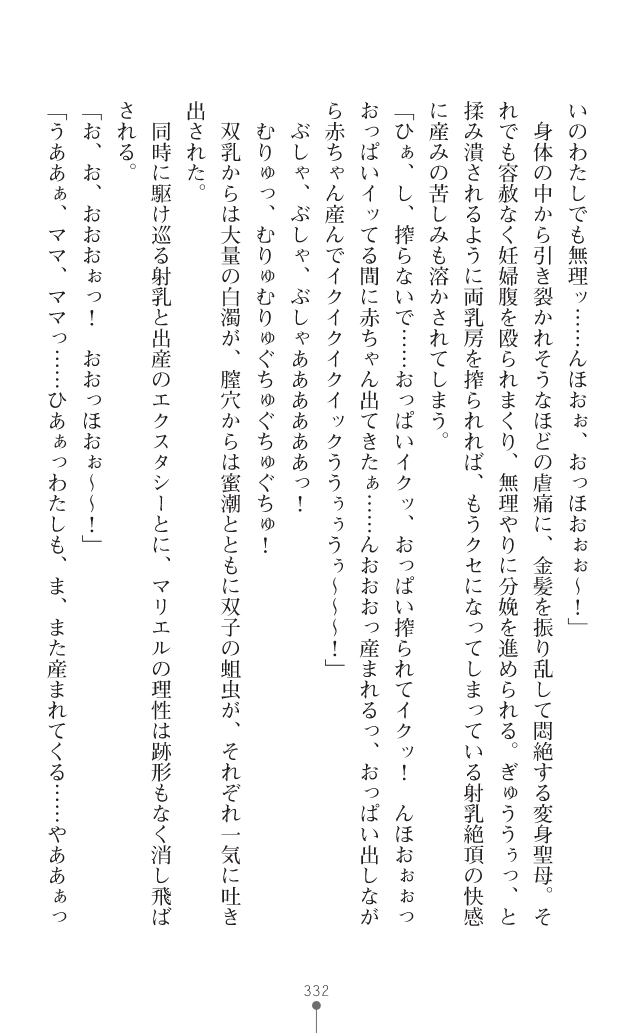 いのわたしでも無理ッ……んほおぉ、おっほおぉぉ～！」
身体の中から引き裂かれそうなほどの虐痛に、金髪を振り乱して悶絶する変身聖母。そ
れでも容赦なく妊婦腹を殴られまくり、無理やりに分娩を進められる。ぎゅううぅっ、と
揉み潰されるように両乳房を搾られれば、もうクセになってしまっている射乳絶頂の快感
に産みの苦しみも溶かされてしまう。
「ひぁ、し、搾らないで……おっぱいイクッ、おっぱい搾られてイクッ！　んほおぉぉっ
おっぱいイッてる間に赤ちゃん出てきたぁ……んおおおっ産まれるっ、おっぱい出しなが
ら赤ちゃん産んでイクイクイクイックううぅぅうぅ～～～！」
ぶしゃ、ぶしゃ、ぶしゃああああああっ！
むりゅっ、むりゅむりゅぐちゅぐちゅぐちゅ！
双乳からは大量の白濁が、膣穴からは蜜潮とともに双子の蛆虫が、それぞれ一気に吐き
出された。
同時に駆け巡る射乳と出産のエクスタシーとに、マリエルの理性は跡形もなく消し飛ば
される。
「お、お、おおおぉっ！　おおっほおぉ～～！」
「うああぁ、ママ、ママっ……ひあぁっわたしも、ま、また産まれてくる……やああぁっ
332